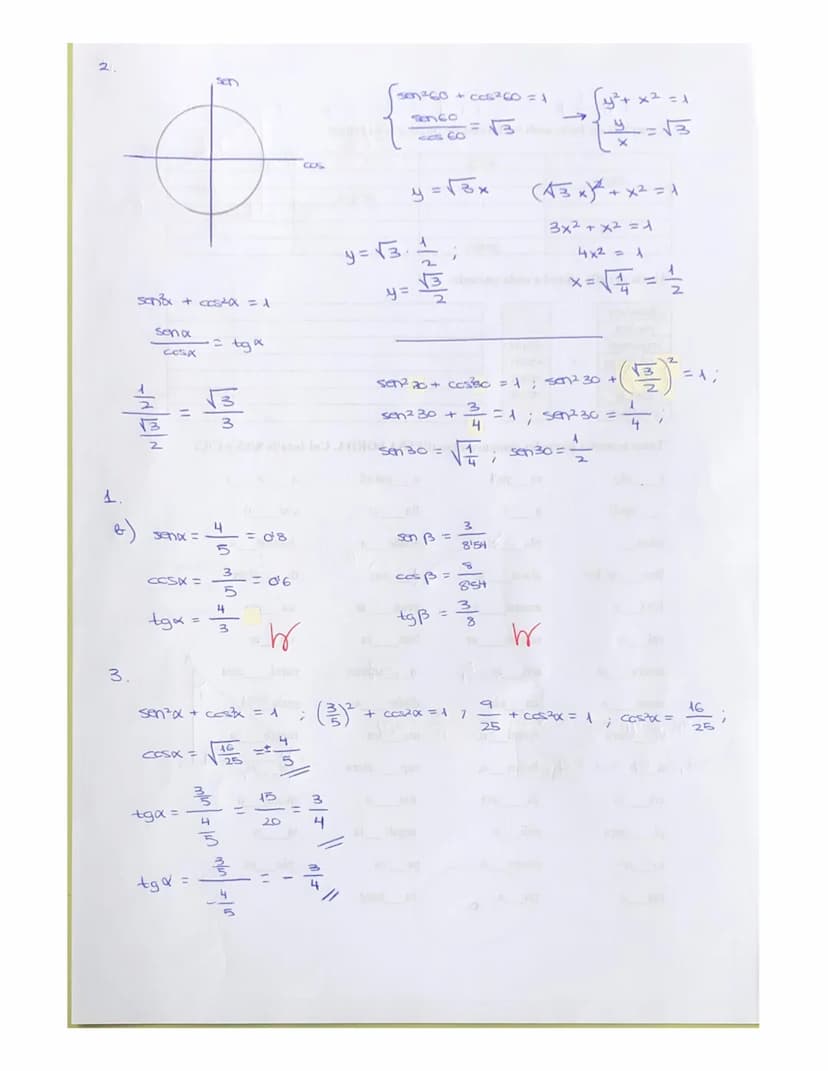 2.
sen
cos
{ sen²60 + cos²60 = 1
sen60/cos60 = √3
→ { y² + x² = 1
y/x = √3
y = √3 x
(√3 x)² + x² = 1
3x² + x² = 1
4x² = 1
x = √(1/4) = 1/2
y = √3 · 1/2 ;
y = √3/2
sen²α + cos²α = 1
senα/cosα = tgα
(1/2)/(√3/2) = √3/3
sen²30 + cos²30 = 1 ; sen²30 + (√3/2)² = 1 ;
sen²30 + 3/4 = 1 ; sen²30 = 1/4 ;
sen30 = √(1/4) ; sen30 = 1/2
1.
b) senα = 4/5 = 0'8
cosα = 3/5 = 0'6
tgα = 4/3
sen β = 3/8'54
cos β = 8/8'54
tg β = 3/8
3.
sen²α + cos²α = 1 ; (3/5)² + cos²α = 1 ; 9/25 + cos²α = 1 ; cos²α = 16/25 ;
cosα = √(16/25) = ± 4/5
tgα = (3/5)/(4/5) = 15/20 = 3/4
tgα = (3/5)/(-4/5) = - 3/4